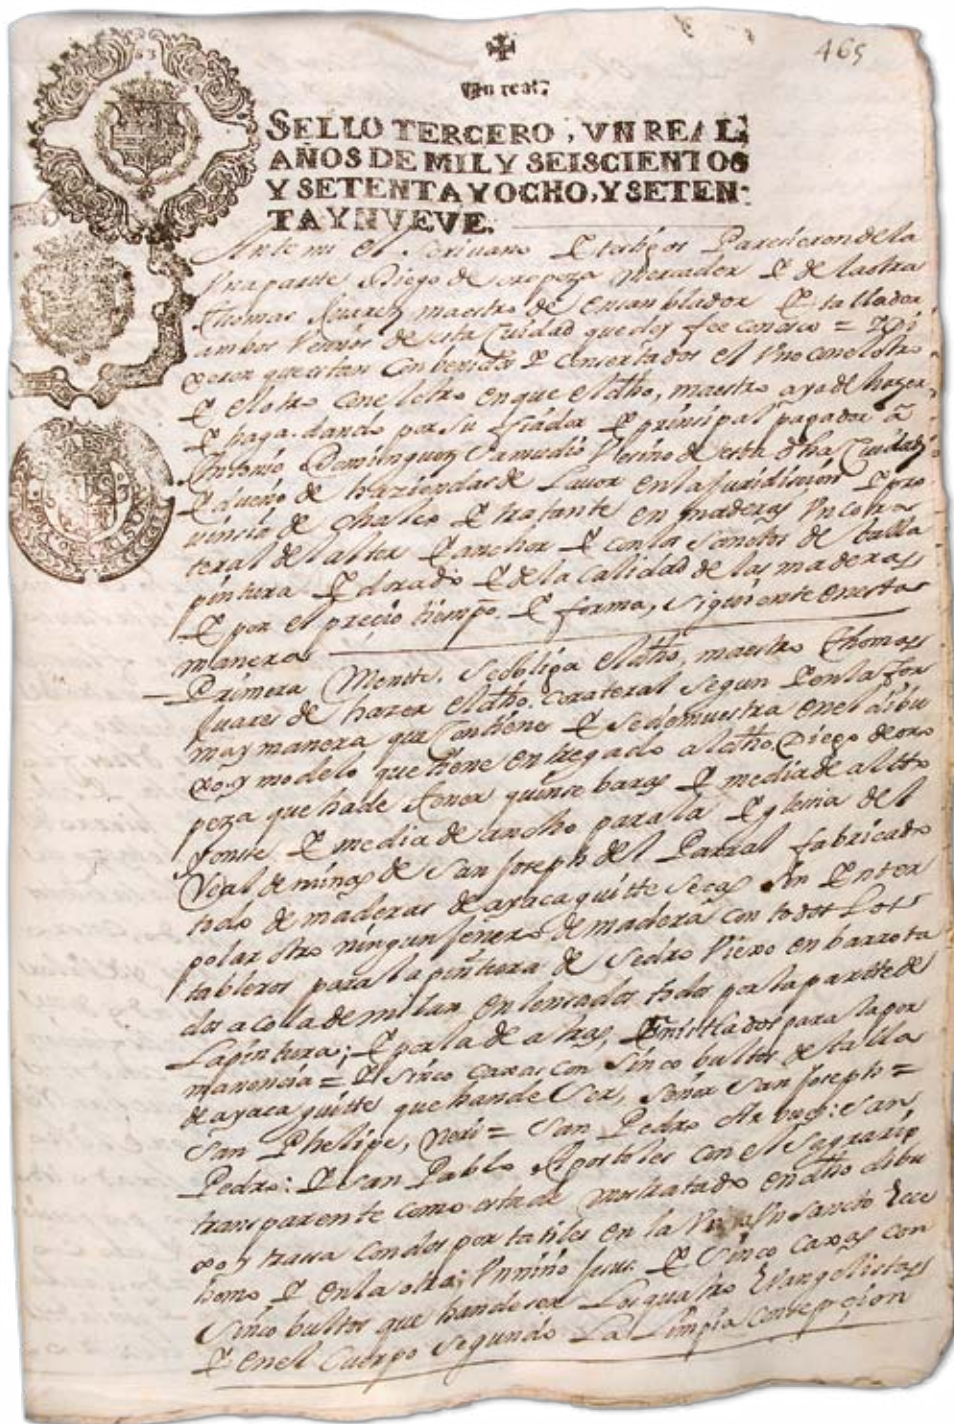 465
Un real.
SELLO TERCERO, VN REAL,
AÑOS DE MIL Y SEISCIENTOS
Y SETENTA Y OCHO, Y SETEN-
TA Y NVEVE.
Ante mi el Scriuano y testigos Parecieron de la
Vna parte Diego de oropeza mercader y de la otra
Thomas Xuarez maestro de ensamblador y tallador
ambos Vecinos de esta Ciudad que doy fee conosco = y Di
xeron que estan Conbenidos y Consertados el Vno con el otro
y el otro con el otro en que el dho, maestro aya de hazer
y haga. dando por su fiador y principal pagador a
Antonio Dominguez Samudio Vesino de esta dha Ciudad
y dueño de haziendas de Lauor en la Juridision y pro
uincia de Chalco y tratante en maderas Vn cola
teral del alter y anchor y con los Sanctos de talla
pintura y dorado y de la Calidad de las maderas
y por el preçio tiempo. y forma, siguiente en esta
manera
Primera Mente. Se obliga el dho, maestro Thomas
Juares de hazer el dho. Corateral segun y en la for
ma y manera que Contiene y se demuestra en el dibu
xo, y modelo que tiene entregado a el dho. Diego de oro
peza que ha de tener quinse baras y media de alto
y onse y media de ancho para la Yglecia del
Real de minas de San Joseph del Parral fabricado
todo de maderas de ayacaquitte secas sin enter
polar otro ningun Jenero de madera con todos Los
tableros para la pintura de Sedro Viexo en barrota
dos a cola de milan en lensados todos por la partte de
La pintura; y por la de atras, para la per
manencia = y sinco caxas con sinco bultos de talla
de ayacaquitte que han de Ser, Señor San Joseph =
San Phelipe, Neri = San Pedro Arbues: San
Pedro: y San Pablo Apostoles con el Sagrario
transparente como esta de mostratado en dho dibu
xo y trassa con dos portatiles en la Vna Vn Sancto Ecce
homo y en la otra; Vn niño Jesus. y Sinco caxas con
Sinco bultos que han de ser Los quatro Evangelistas
y en el Cuerpo segundo La Limpia Consepçion